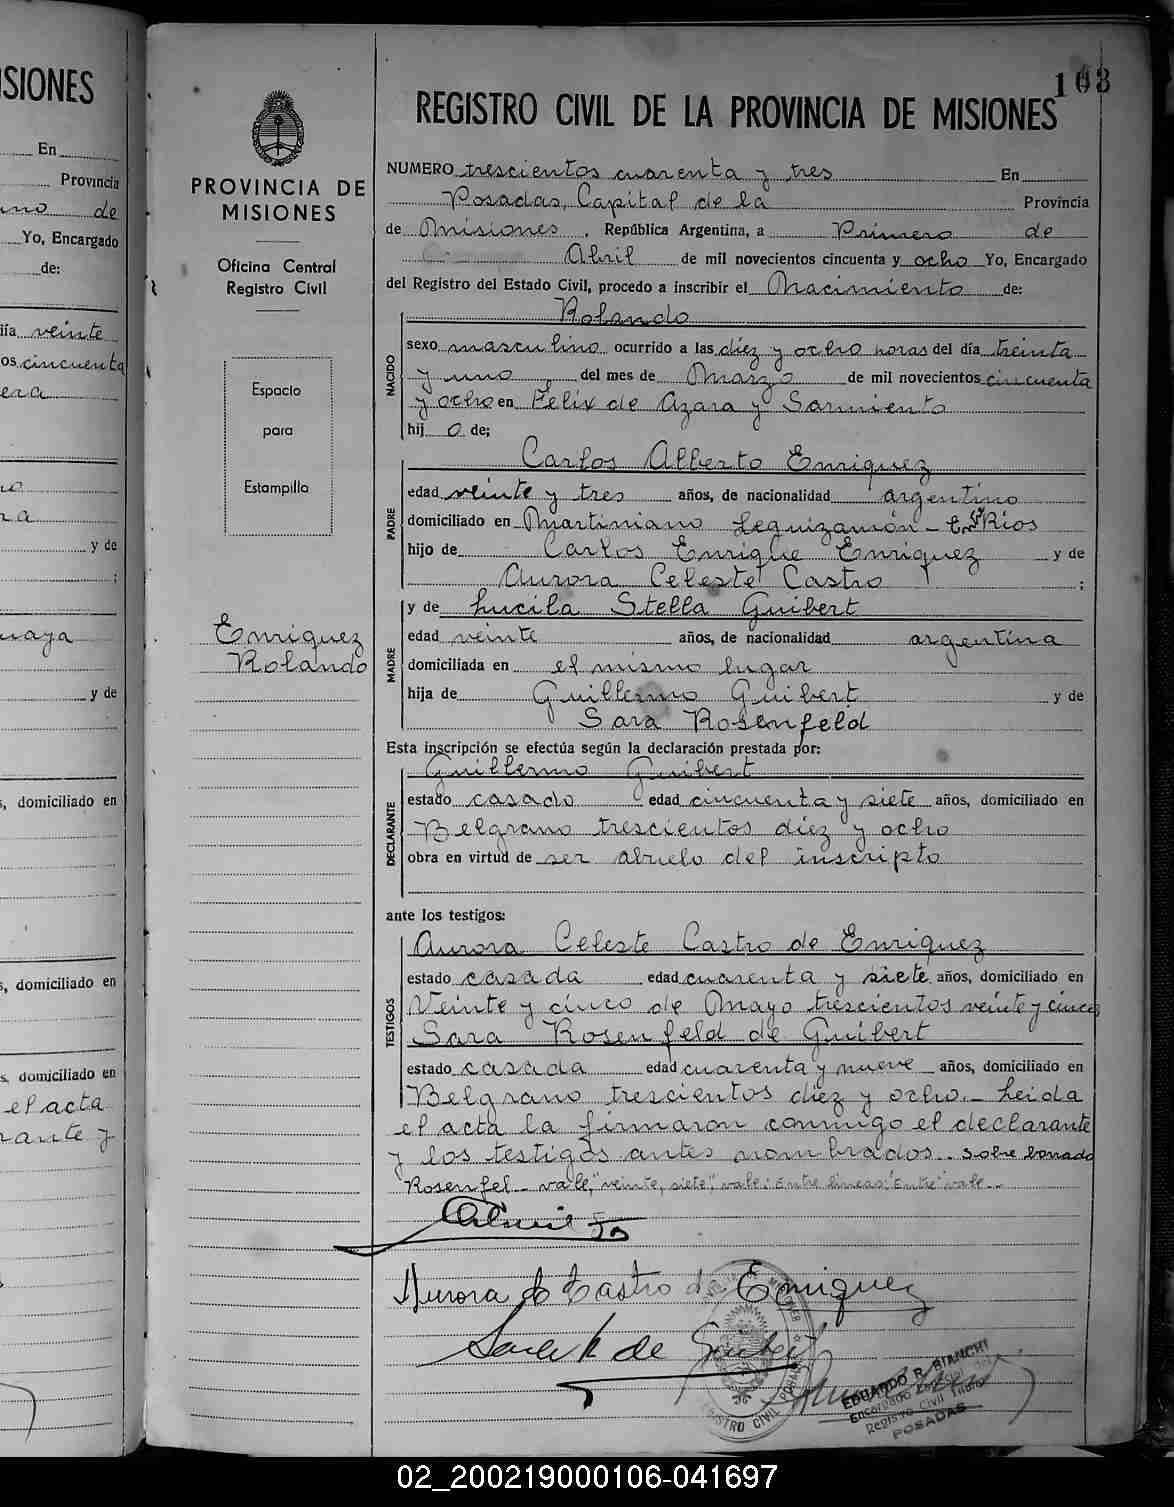 ISIONES
En
Provincia
uno de
Yo, Encargado
de:
día veinte
os cincuenta
era
ra
y de
;
uaya
y de
s, domiciliado en
s, domiciliado en
s, domiciliado en
el acta
rante y
103
PROVINCIA DE
MISIONES
Oficina Central
Registro Civil
Espacio
para
Estampilla
Enriquez
Rolando
REGISTRO CIVIL DE LA PROVINCIA DE MISIONES
NUMERO trescientos cuarenta y tres En
Posadas, Capital de la Provincia
de Misiones, República Argentina, a Primero de
Abril de mil novecientos cincuenta y ocho Yo, Encargado
del Registro del Estado Civil, procedo a inscribir el Nacimiento de:
NACIDO
Rolando
sexo masculino ocurrido a las diez y ocho horas del día treinta
y uno del mes de Marzo de mil novecientos cincuenta
y ocho en Félix de Azara y Sarmiento
hij o de;
PADRE
Carlos Alberto Enriquez
edad veinte y tres años, de nacionalidad argentino
domiciliado en Martiniano Leguizamón - E. Ríos
hijo de Carlos Enrique Enriquez y de
Aurora Celeste Castro ;
MADRE
y de Lucila Stella Guibert
edad veinte años, de nacionalidad argentina
domiciliada en el mismo lugar
hija de Guillermo Guibert y de
Sara Rosenfeld
Esta inscripción se efectúa según la declaración prestada por:
DECLARANTE
Guillermo Guibert
estado casado edad cincuenta y siete años, domiciliado en
Belgrano trescientos diez y ocho
obra en virtud de ser abuelo del inscripto
ante los testigos:
TESTIGOS
Aurora Celeste Castro de Enriquez
estado casada edad cuarenta y siete años, domiciliado en
Veinte y cinco de Mayo trescientos veinte y cinco
Sara Rosenfeld de Guibert
estado casada edad cuarenta y nueve años, domiciliado en
Belgrano trescientos diez y ocho.- Leída
el acta la firmaron conmigo el declarante
y los testigos antes nombrados.. Sobre borrado
Rosenfel - vale, "veinte, siete", vale: Entre líneas: "Entre" vale --
Aurora C Castro de Enriquez
Sara R de Guibert
REGISTRO CIVIL POSADAS MISIONES
EDUARDO R. BIANCHI
Encargado
Registro Civil Titular
POSADAS
02_200219000106-041697